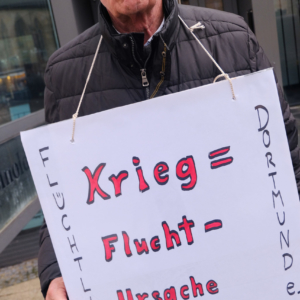 Krieg =
Flucht-
Ursache
FLÜCHTL
DORTMUND e.